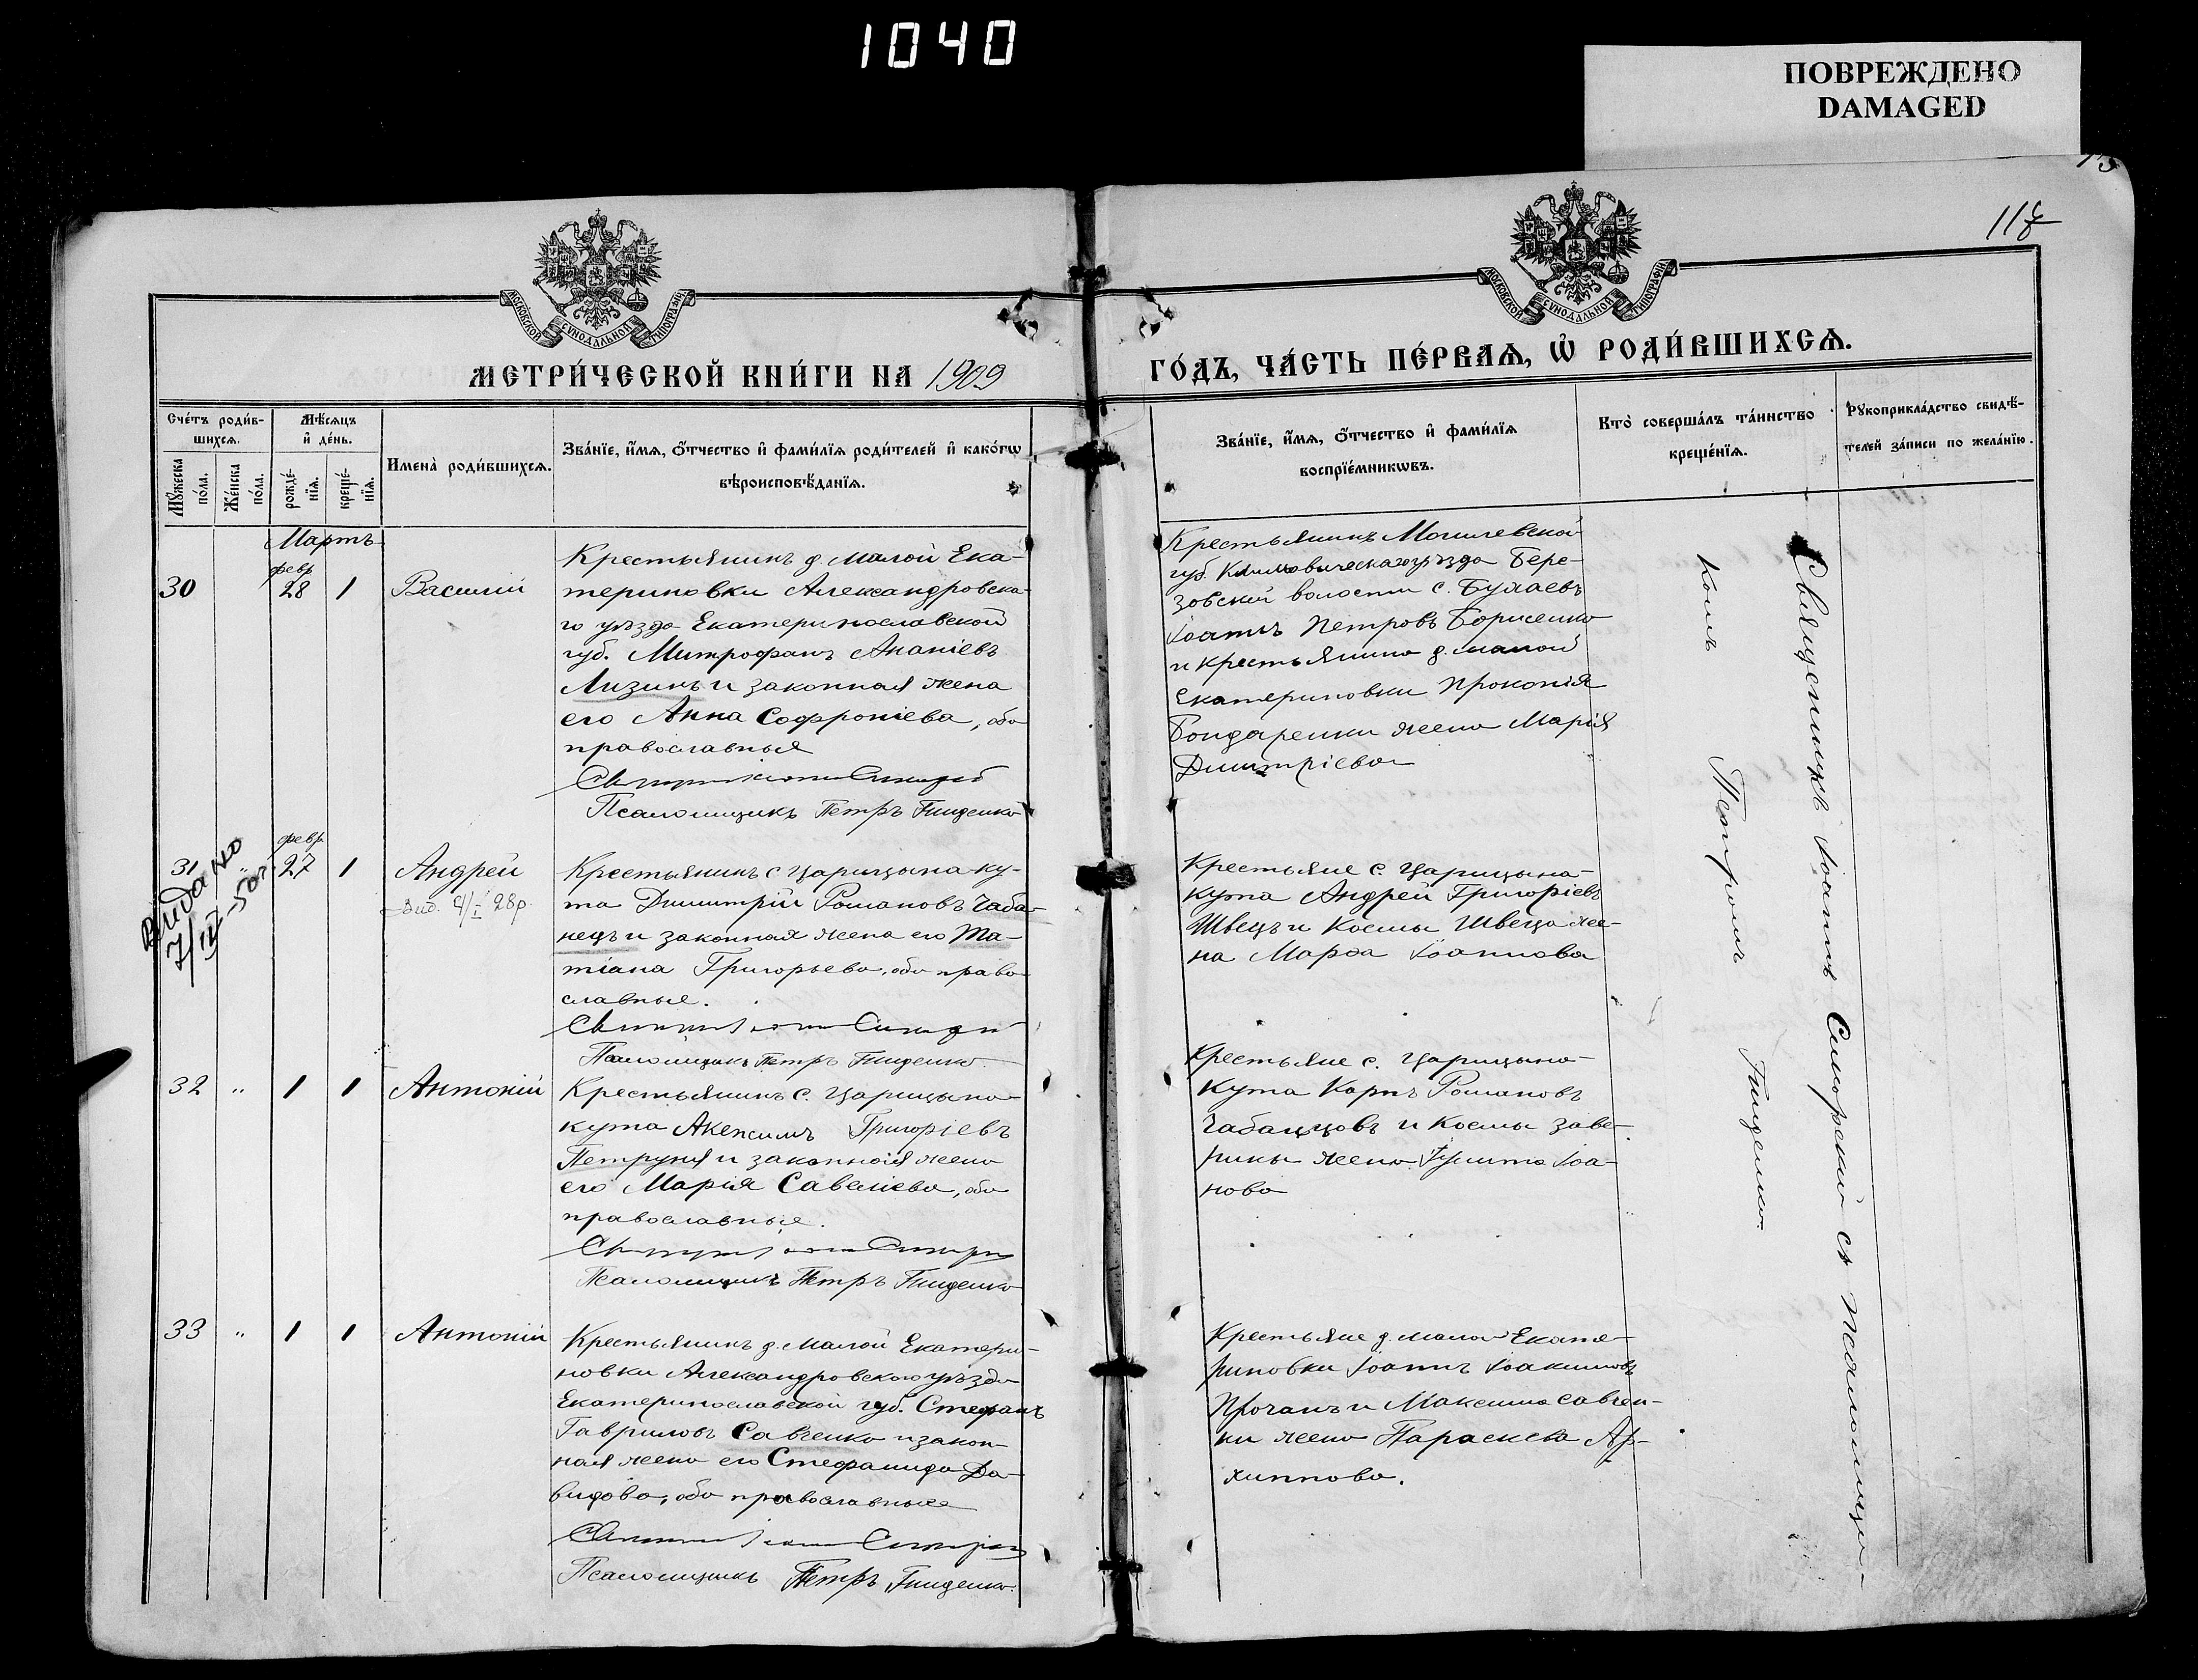 1040
ПОВРЕЖДЕНО
DAMAGED
117
МОСКОВСКОЙ СУНОДАЛЬНОЙ ТИПОГРАФІИ
МОСКОВСКОЙ СУНОДАЛЬНОЙ ТИПОГРАФІИ
МЕТРИ́ЧЕСКОЙ КНИ́ГИ НА 1909
ГО́ДЪ, ЧА́СТЬ ПЕ́РВАѦ, Ѡ҆ РОДИ́ВШИХСѦ.
Сче́тъ роди́в-
шихсѧ.
Мѣ́сѧцъ
и҆ де́нь.
Мꙋ́жеска
по́ла.
Же́нска
по́ла.
рожде́-
нїѧ.
креще́-
нїѧ.
Имена̀ роди́вшихсѧ.
Зва́нїе, и҆́мѧ, ѻ҆́тчество и҆ фами́лїѧ роди́телей и҆ како́гѡ
вѣроисповѣ́данїѧ.
Зва́нїе, и҆́мѧ, ѻ҆́тчество и҆ фами́лїѧ
воспрїе́мникѡвъ.
Кто̀ соверша́лъ та́инство
креще́нїѧ.
Рꙋкоприкла́дство свидѣ́-
телей за́писи по жела́нїю.
Мартъ
30
февр
28 1
Василій
Крестьянинъ д. Малой Ека-
териновки Александровска-
го уѣзда Екатеринославской
губ. Митрофанъ Ананіевъ
Лизинъ и законная жена
его Анна Софроніева, оба
православные
Псаломщикъ Петръ Гнеденко
Крестьянинъ Могилевской
губ. Климовическаго уѣзда Бере-
зовской волости с. Булаевъ
Іоаннъ Петровъ Борисенко
и крестьянина д. малой
Екатериновки Прокопія
Бондаренки жена Марія
Димитріева
31 "
февр
27 1
Андрей
Вид. 4/I 28р.
Видано
7/IV-50г.
Крестьянинъ с. Царицына-ку-
та Димитрій Романовъ Чаба-
нецъ и законная жена его Та-
тіана Григорьева, оба право-
славные.
Псаломщикъ Петръ Гнеденко
Крестьяне с. Царицына-
кута Андрей Григоріевъ
Швецъ и Космы Швеца же-
на Марѳа Іоаннова
32 " 1 1
Антоній
Крестьянинъ с. Царицына-
кута Акексимъ Григоріевъ
Петруня и законная жена
его Марія Савеліева, оба
православные.
Псаломщикъ Петръ Гнеденко
Крестьяне с. Царицына-
кута Карпъ Романовъ
Чабанцовъ и Космы Заве-
рики жена Іоа-
нова
33 " 1 1
Антоній
Крестьянинъ д. Малой Екатери-
новки Александровского уѣзда
Екатеринославской губ. Стефанъ
Гавриловъ Савченко и закон-
ная жена его Стефанида Да-
видова, оба православные
Псаломщикъ Петръ Гнеденко.
Крестьяне д. малой Екате-
риновки Іоаннъ Іоакимовъ
Прочанъ и Максима Савчен-
ки жена Параскева Ар-
хиппова.
Священникъ Іоаннъ Сикорскій съ псаломщи-
комъ Петромъ Гнеденко.